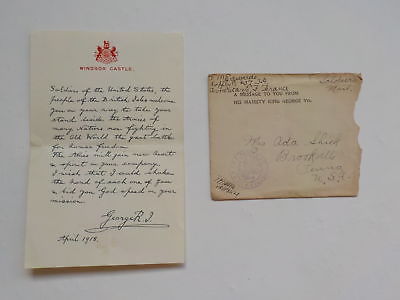 WINDSOR CASTLE.
Soldiers of the United States, the
people of the British Isles welcome
you on your way to take your
stand beside the Armies of
many Nations now fighting in
the Old World the great battle
for human freedom.
The Allies will gain new heart
& spirit in your company.
I wish that I could shake
the hand of each one of you
& bid you God speed on your
mission.
George R.I.
April 1918.
Soldiers
Mail.
France
A MESSAGE TO YOU FROM
HIS MAJESTY KING GEORGE Vth.
Ada
Brookville
Penna
U.S.A.